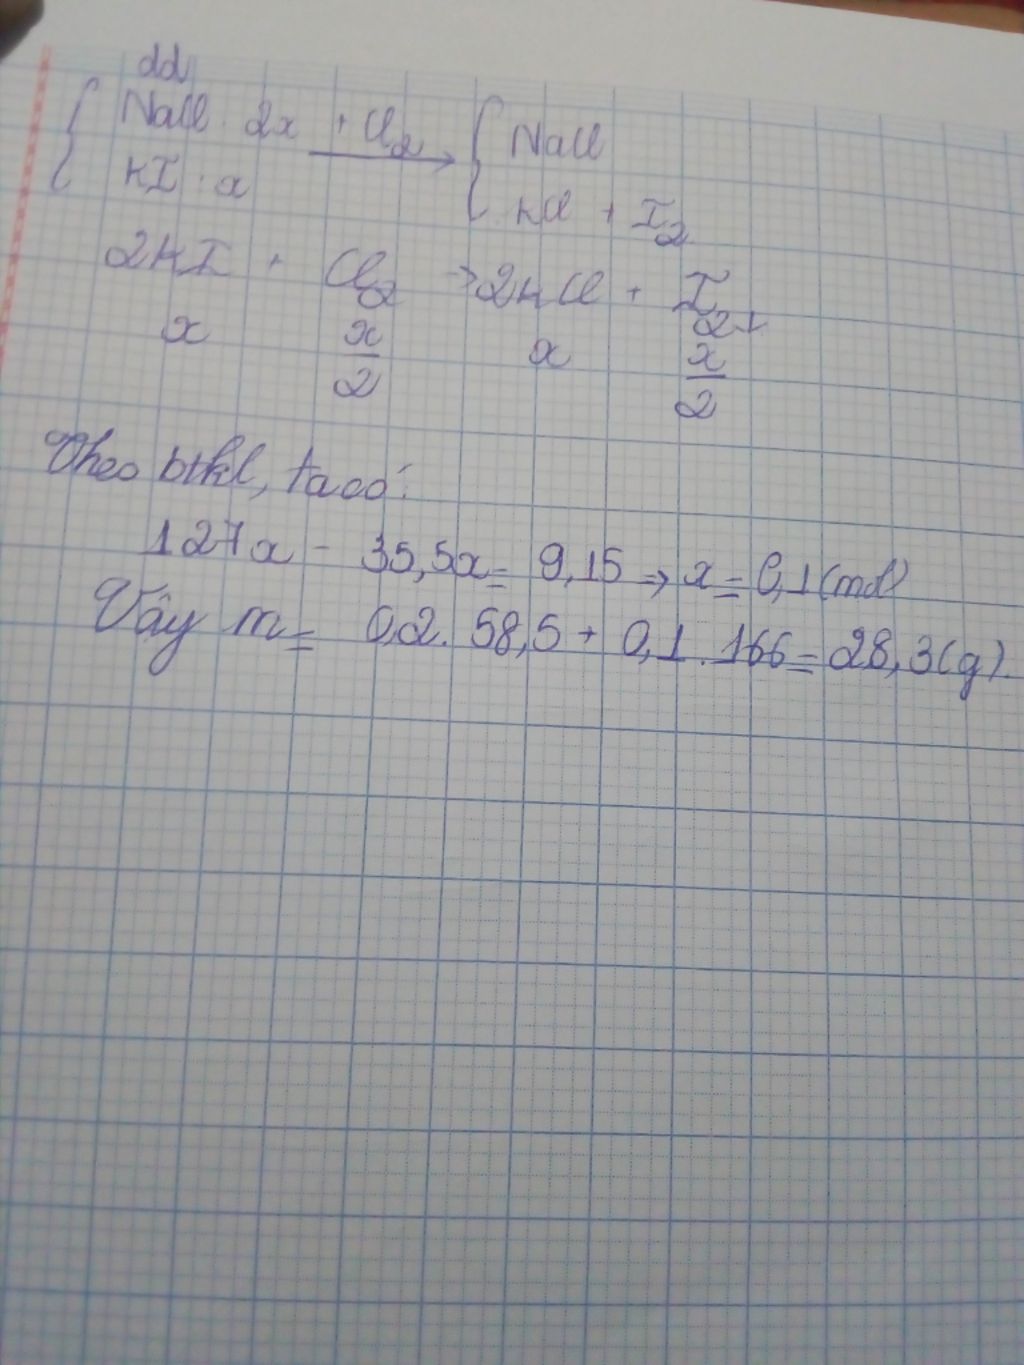 dd
{ NaCl 2x + Cl2 → { NaCl
KI . x KCl + I2
2KI + Cl2 → 2KCl + I2↓
x x/2 x x/2
Theo btkl, ta có:
127x - 35,5x = 9,15 → x = 0,1 (mol)
Vây m = 0,2. 58,5 + 0,1. 166 = 28,3 (g).